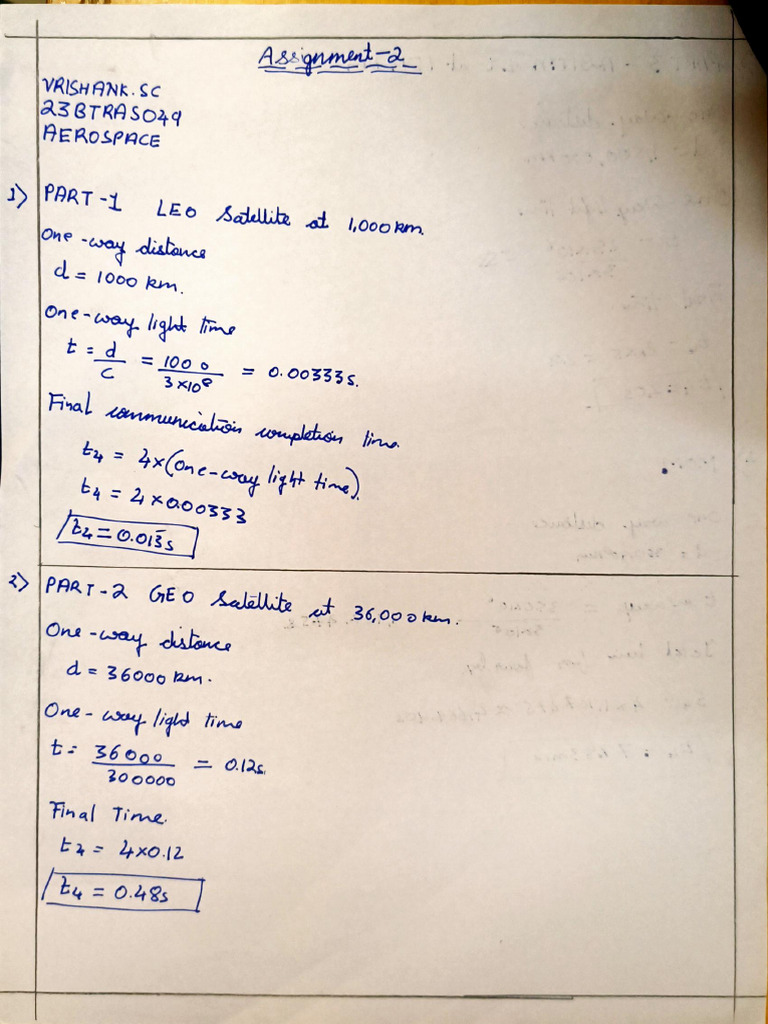 Assignment-2
VRISHANK.SC
23BTRAS049
AEROSPACE
1) PART-1 LEO Satellite at 1,000 km.
One-way distance
d = 1000 km.
One-way light time
t = d/C = 1000/3×10⁸ = 0.00333s.
Final communication completion time.
t4 = 4×(one-way light time).
t4 = 4×0.00333
t4 = 0.013s
2) PART-2 GEO Satellite at 36,000 km.
One-way distance
d = 36000 km.
One-way light time
t = 36000/300000 = 0.12s.
Final Time.
t4 = 4×0.12
t4 = 0.48s